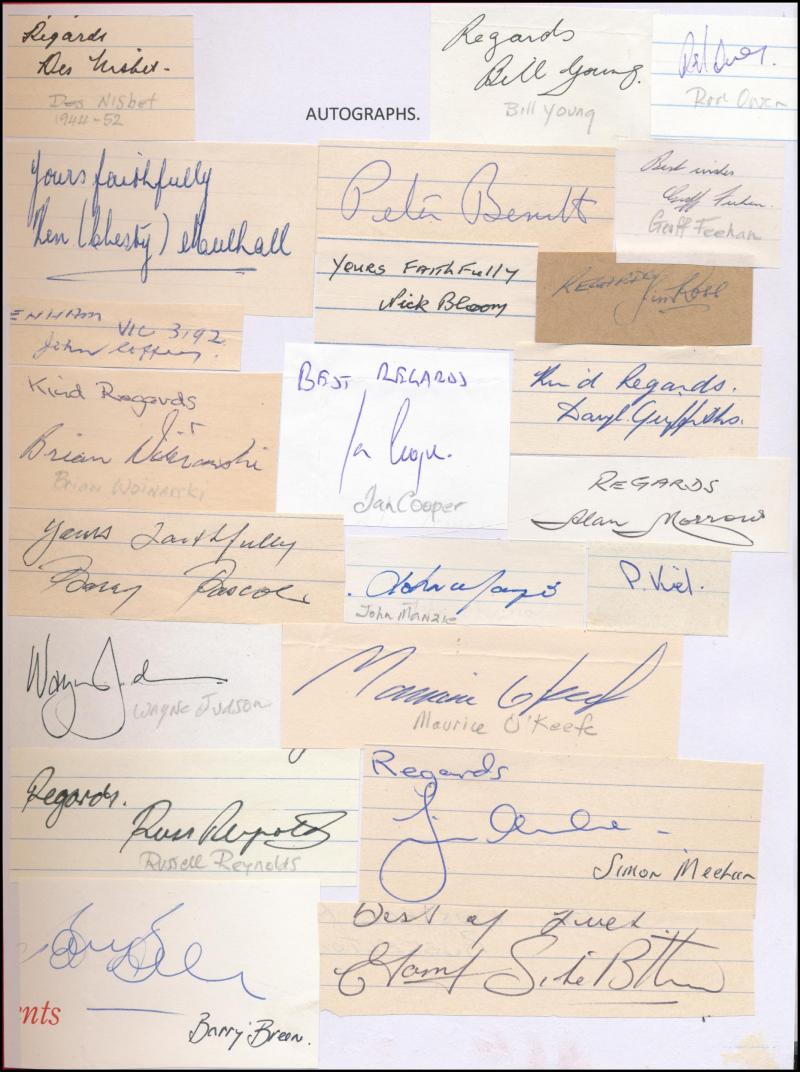 Regards
Des Nisbet-
Des Nisbet
1944-52
AUTOGRAPHS.
Regards
Bill Young.
Bill Young
Rod Owen
Yours faithfully
Ken (Chesty) Mulhall
Peter Bennett
Best wishes
Geoff Feehan
Geoff Feehan
Yours Faithfully
Nick Bloom
Regards
Jim Ross
ENHAM VIC 3192
John
Kind Regards
Brian Woinarski
Brian Woinarski
BEST REGARDS
Ian Cooper
Ian Cooper
Kind Regards.
Daryl Griffiths.
REGARDS
Alan Morrow
Yours Faithfully
Barry Pascoe
John Manzie
John Manzie
P. Kiel.
Wayne Judson
Wayne Judson
Maurice O'Keefe
Maurice O'Keefe
Regards.
Russ Reynolds
Russell Reynolds
Regards
Simon Meehan
Barry Breen
ents
Barry Breen.
Best of Luck